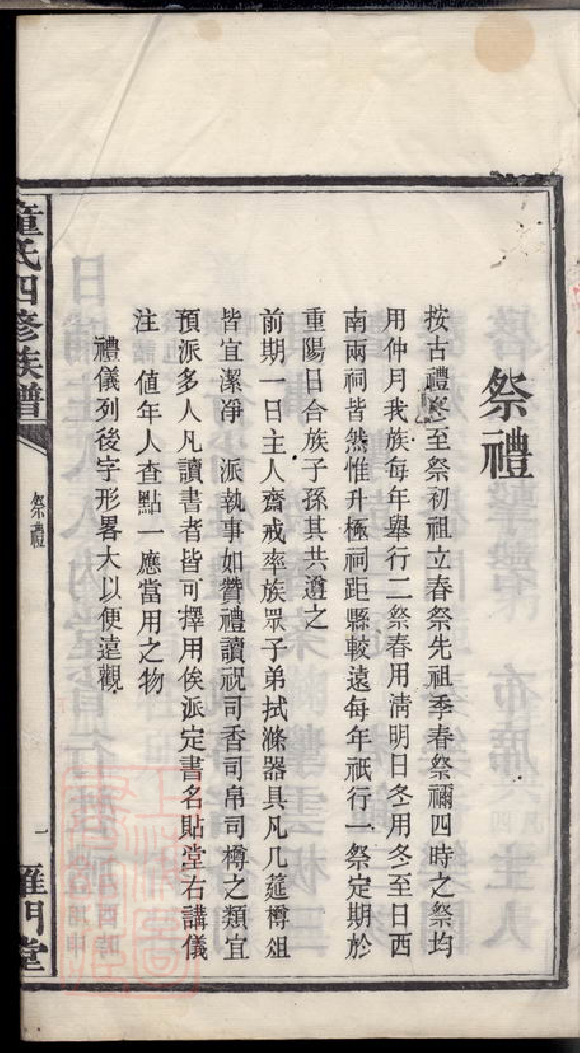 祭禮
按古禮冬至祭初祖立春祭先祖季春祭禰四時之祭均
用仲月我族每年舉行二祭春用清明日冬用冬至日西
南兩祠皆然惟升極祠距縣較遠每年祇行一祭定期於
重陽日合族子孫其共遵之
前期一日主人齋戒率族眾子弟拭滌器具凡几筵樽俎
皆宜潔凈 派執事如贊禮讀祝司香司帛司樽之類宜
預派多人凡讀書者皆可擇用俟派定書名貼堂右講儀
注 值年人查點一應當用之物
禮儀列後字形畧大以便遠觀
童氏四修族譜
祭禮
一
雁門堂